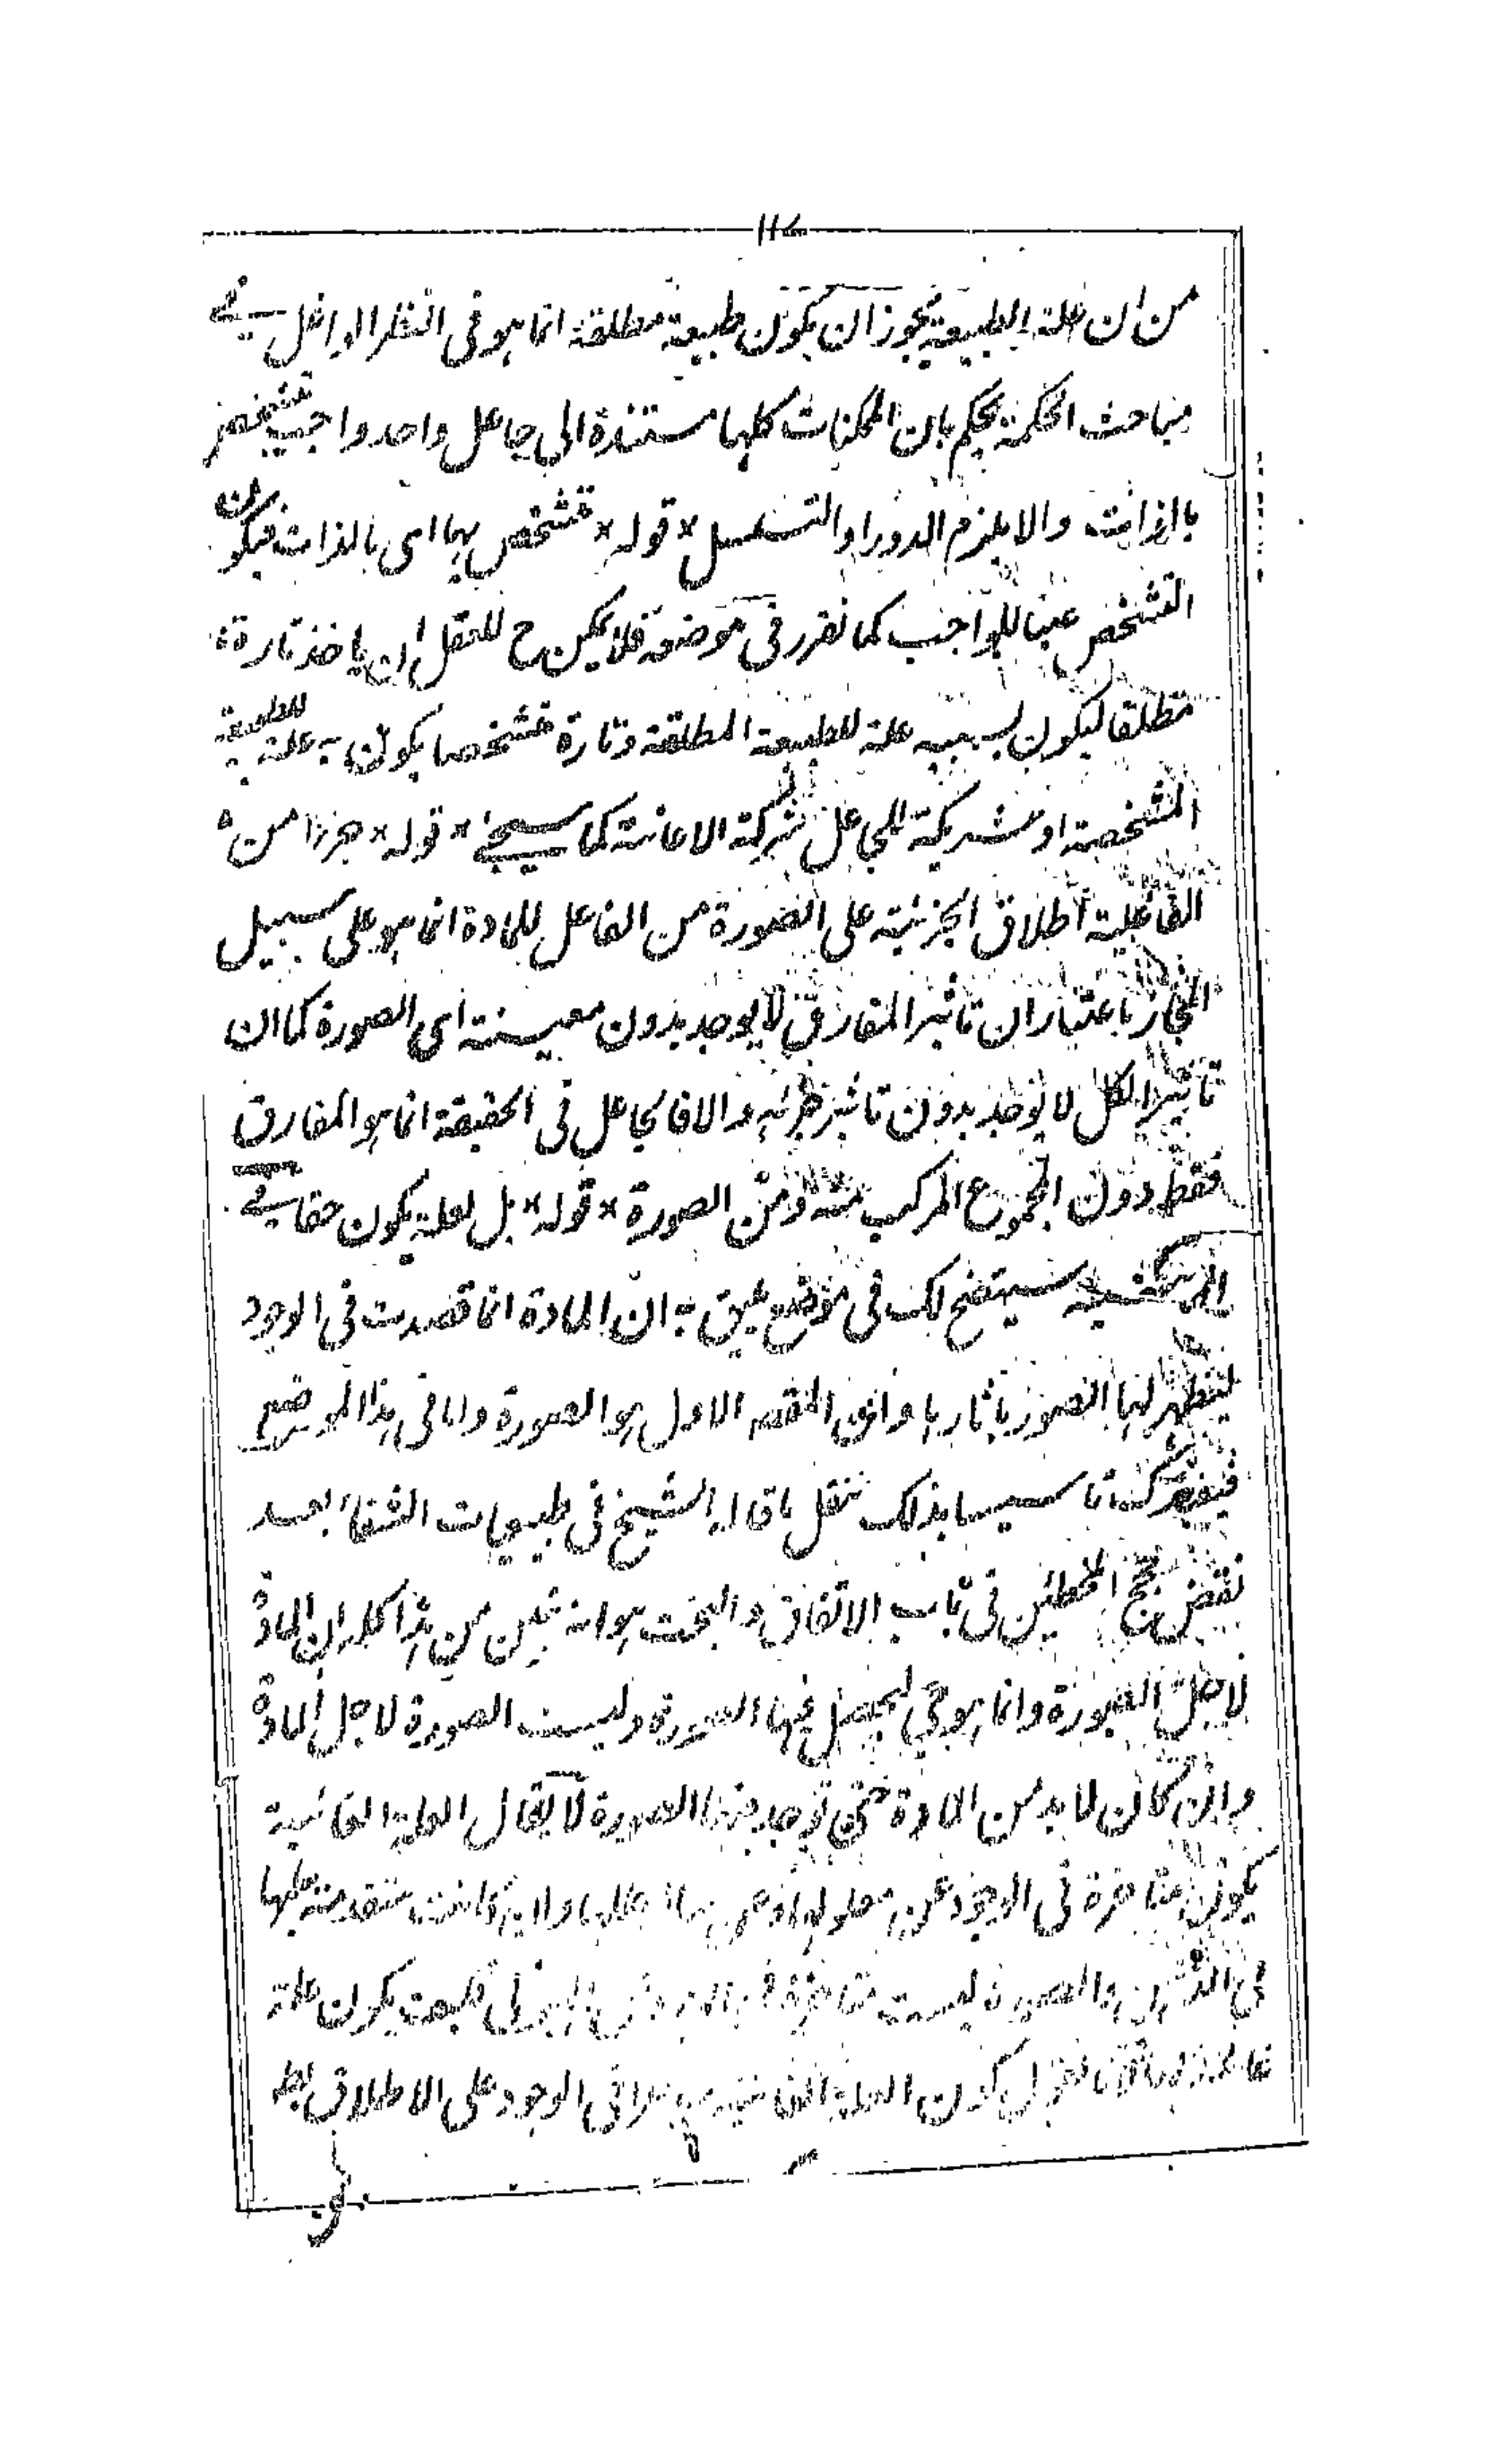 من ان علة الطبيعة يجوز ان يكون طبيعة مطلقة انما هو فى النظر الداخل فے
مباحث الحكمة يحكم بان الممكنات كلها مستندة الى جاعل واحد واجب متشخص
بالذات والا يلزم الدور او التسلسل * قوله * متشخص بها اى بالذات فيكون
التشخص عينا للواجب كما تقرر فى موضعه فلا يمكن ح للعقل ان ياخذ تارة
مطلقا ليكون بسببه علة للطبيعة المطلقة وتارة متشخصا يكون به علة للطبيعة
المشخصة او شريكة للجاعل شركة الاعانة كما سيجئ * قوله * جزءا من
الفاعلية اطلاق الجزئية على الصورة من الفاعل للمادة انما هو على سبيل
المجاز باعتبار ان تاثير المفارق لا يوجد بدون معينته اى الصورة كما ان
تاثير الكل لا يوجد بدون تاثير جزئه والا فالجاعل فى الحقيقة انما هو المفارق
فقط دون المجموع المركب منه ومن الصورة * قوله * بل لعله يكون حقا فے
سيتضح لك فى موضع يليق به ان المادة انما قصدت فى الوجود
ليظهر لها الصور باثارها وان المقصد الاول هو الصورة واما فى هذا الموضع
تاسيسا بذلك ننقل ما قاله الشيخ فى طبيعيات الشفاء بعد
نقض حجج المخطئين فى باب الاتفاق والبخت هو انه تبين من هذا كله ان المادة
لاجل الصورة وانما هو حى ليحصل فيها الصورة وليست الصورة لاجل المادة
وان كان لا بد من المادة حتى توجد فيها الصورة لا يقال العلة الغائية
يكون متاخرة فى الوجود عن معلولها وان كانت متقدمة عليها
فى الذهن والصورة ليست متاخرة فكيف يكون علة
يكون العلة الغائية فى الوجود على الاطلاق